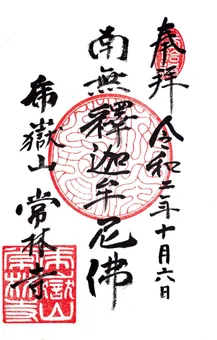 奉拝
令和二年十月六日
南無釋迦牟尼佛
帝嶽山
常林寺